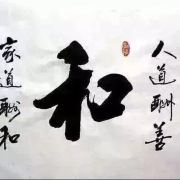 人道酬善
和
家道酬和